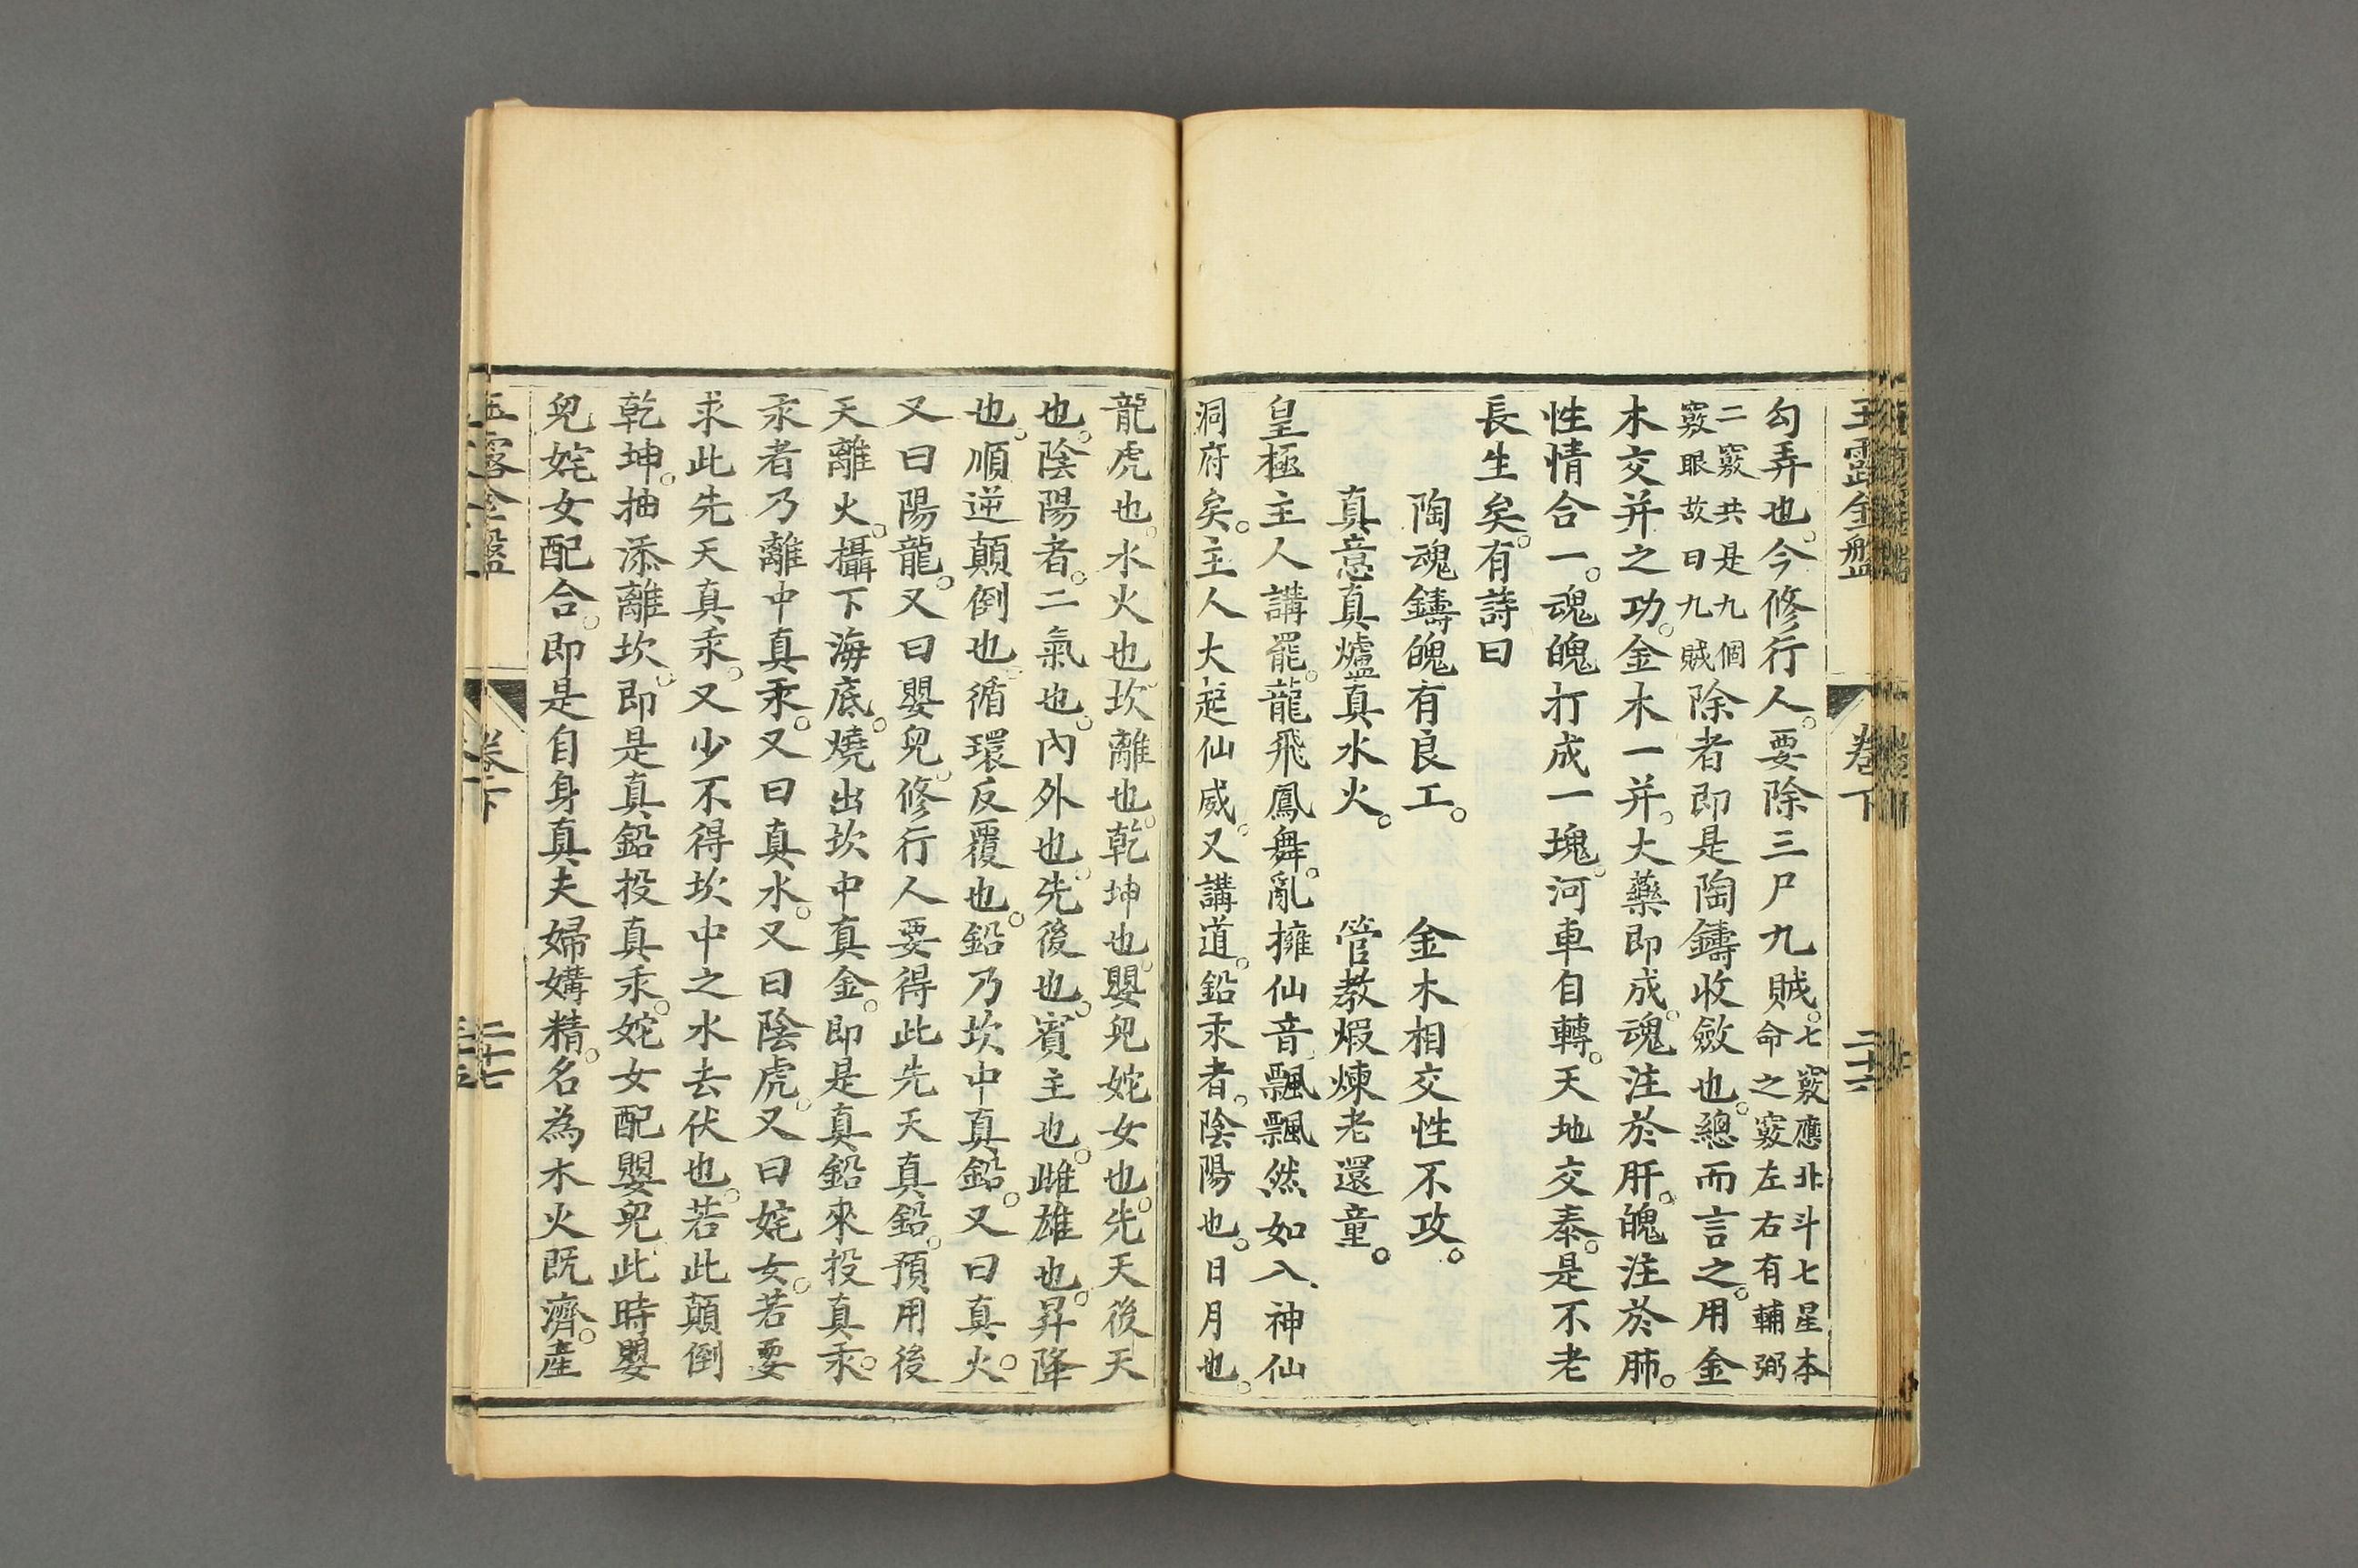 玉露金盤 卷下 二十六
勾弄也。今修行人。要除三尸九賊。七竅應北斗七星本命之竅左右有輔弼
二竅共是九個竅眼故曰九賊除者即是陶鑄收斂也。總而言之。用金
木交并之功。金木一并。大藥即成。魂注於肝。魄注於肺。
性情合一。魂魄打成一塊。河車自轉。天地交泰。是不老
長生矣。有詩曰
陶魂鑄魄有良工。 金木相交性不攻。
真意真爐真水火。 管教煆煉老還童。
皇極主人講罷。龍飛鳳舞。亂擁仙音飄飄然如入神仙
洞府矣。主人大起仙威。又講道。鉛汞者。陰陽也。日月也。
龍虎也。水火也。坎離也。乾坤也。嬰兒姹女也。先天後天
也。陰陽者。二氣也。內外也。先後也。賓主也。雌雄也。昇降
也。順逆顛倒也。循環反覆也。鉛乃坎中真鉛。又曰真火。
又曰陽龍。又曰嬰兒。修行人要得此先天真鉛。預用後
天離火。攝下海底。燒出坎中真金。即是真鉛來投真汞。
汞者乃離中真汞。又曰真水。又曰陰虎。又曰姹女。若要
求此先天真汞。又少不得坎中之水去伏也。若此顛倒
乾坤。抽添離坎。即是真鉛投真汞。姹女配嬰兒此時嬰
兒姹女配合。即是自身真夫婦媾精。名為木火既濟。產
玉露金盤 卷下 二十七